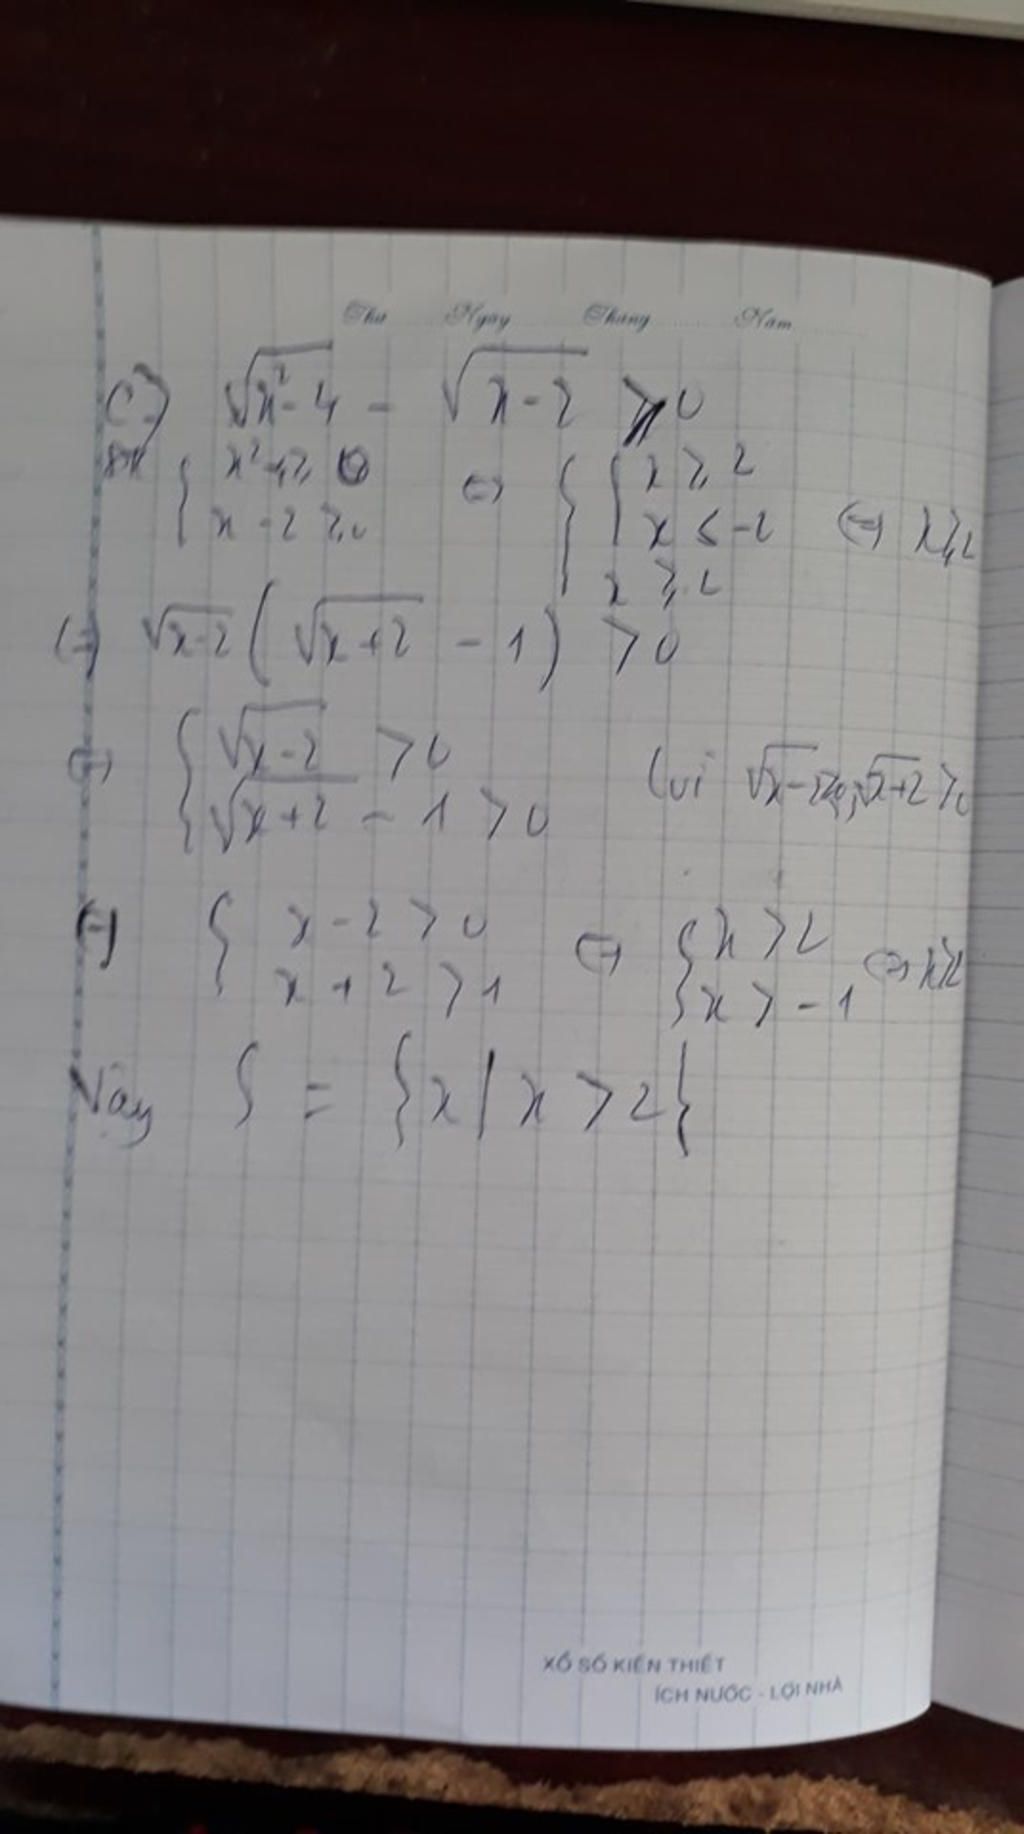 Thứ Ngày Tháng Năm
c) √(x²-4) - √(x-2) > 0
ĐK { x²-4 ≥ 0 ⇔ { [ x ≥ 2
x - 2 ≥ 0 x ≤ -2 ⇔ x ≥ 2
x ≥ 2
(=) √(x-2) ( √(x+2) - 1 ) > 0
(=) { √(x-2) > 0
√(x+2) - 1 > 0 (vì √(x-2) ≥ 0; √(x+2) ≥ 0
(=) { x - 2 > 0 ⇔ { x > 2
x + 2 > 1 x > -1 ⇔ x > 2
Vậy S = {x | x > 2}
XỔ SỐ KIẾN THIẾT
ÍCH NƯỚC - LỢI NHÀ